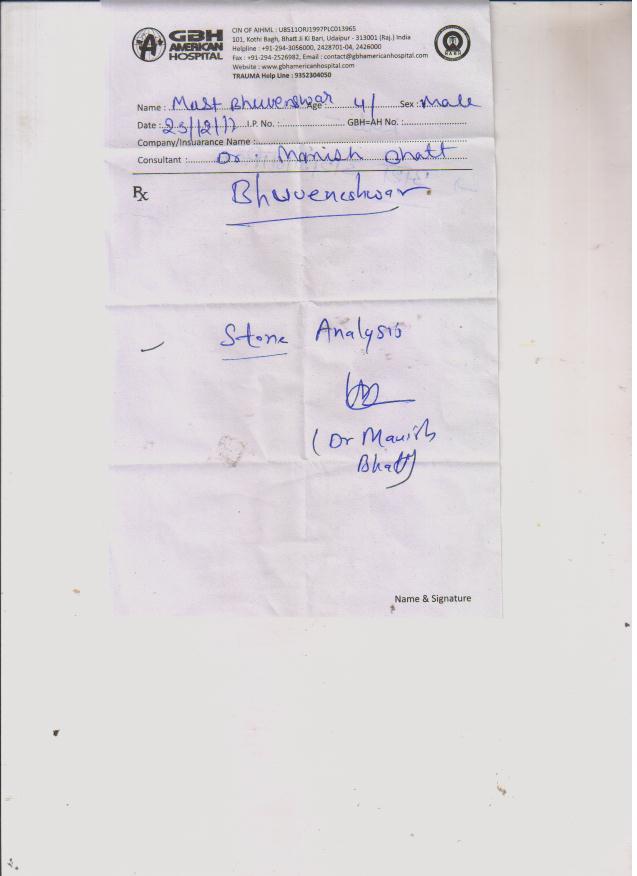 GBH
AMERICAN
HOSPITAL
CIN OF AIHML : U8511ORJ1997PLC013965
101, Kothi Bagh, Bhatt Ji Ki Bari, Udaipur - 313001 (Raj.) India
Helpline : +91-294-3056000, 2428701-04, 2426000
Fax : +91-294-2526982, Email : contact@gbhamericanhospital.com
Website : www.gbhamericanhospital.com
TRAUMA Help Line : 9352304050
NABH
Name : Mast Bhuveneshwar Age : 4/ Sex : Male
Date : 23/12/17 I.P. No. : GBH=AH No. :
Company/Insuarance Name :
Consultant : Dr. Manish Bhatt
Rx Bhuveneshwar
Stone Analysis
(Dr Manish
Bhatt)
Name & Signature